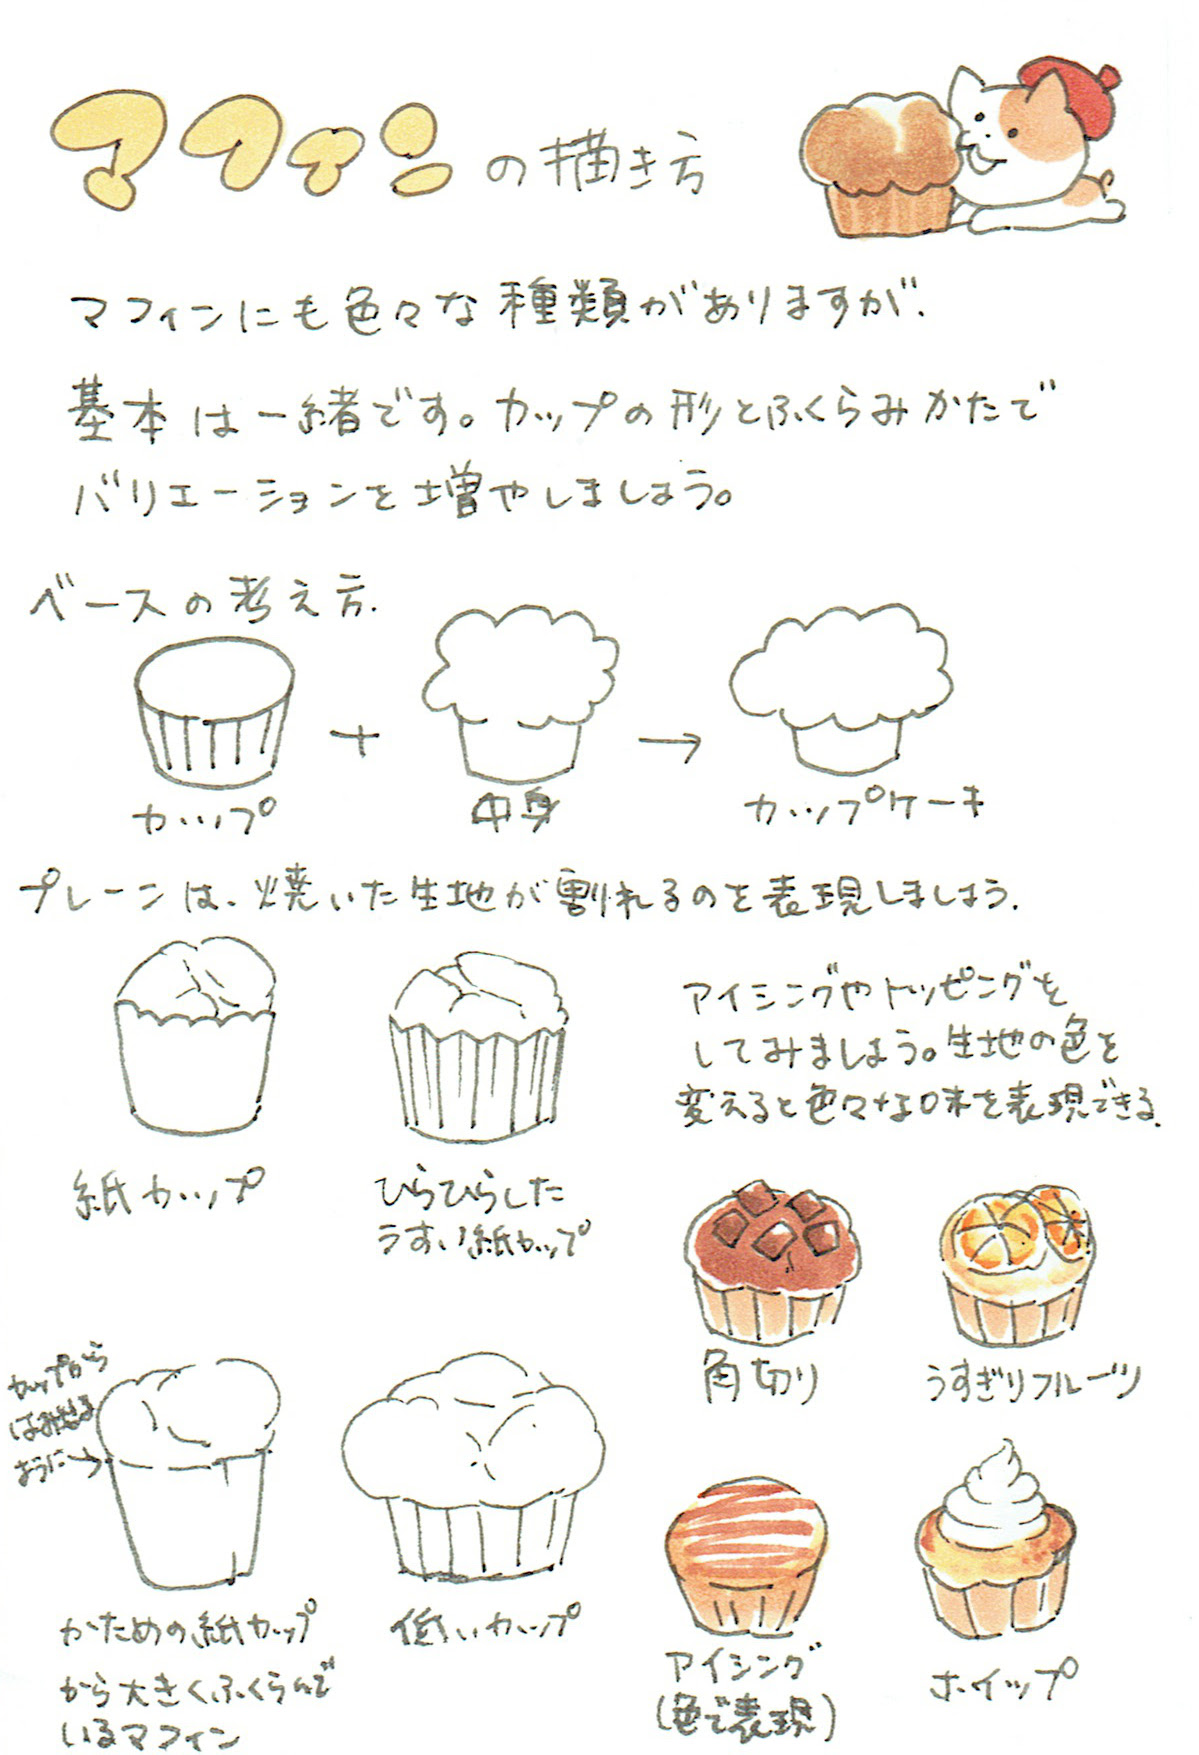 マフィンの描き方
マフィンにも色々な種類がありますが、
基本は一緒です。カップの形とふくらみかたで
バリエーションを増やしましょう。
ベースの考え方.
カップ
+
中身
→
カップケーキ
プレーンは、焼いた生地が割れるのを表現しましょう.
アイシングやトッピングを
してみましょう。生地の色を
変えると色々な味を表現できる.
紙カップ
ひらひらした
うすい紙カップ
角切り
うすぎりフルーツ
カップから
はみ出る
ように→
かための紙カップ
から大きくふくらんで
いるマフィン
低いカップ
アイシング
(色で表現)
ホイップ